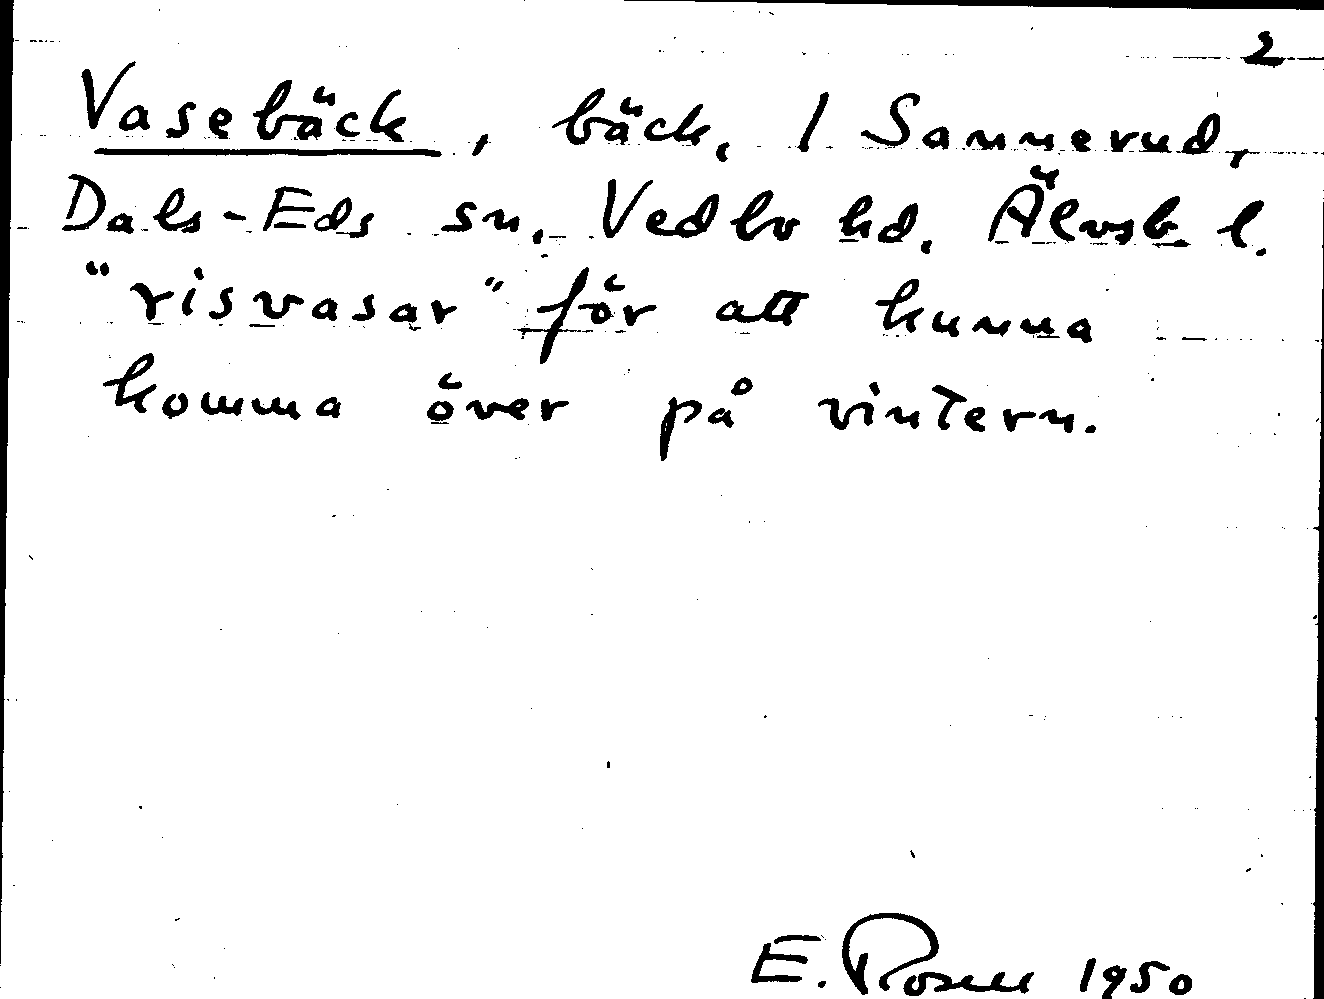 2
Vasebäck, bäck, / Sannerud,
Dals-Eds sn. Vedbo hd. Älvsb. l.
"risvasar" för att kunna
komma över på vintern.
E. Rosell 1950